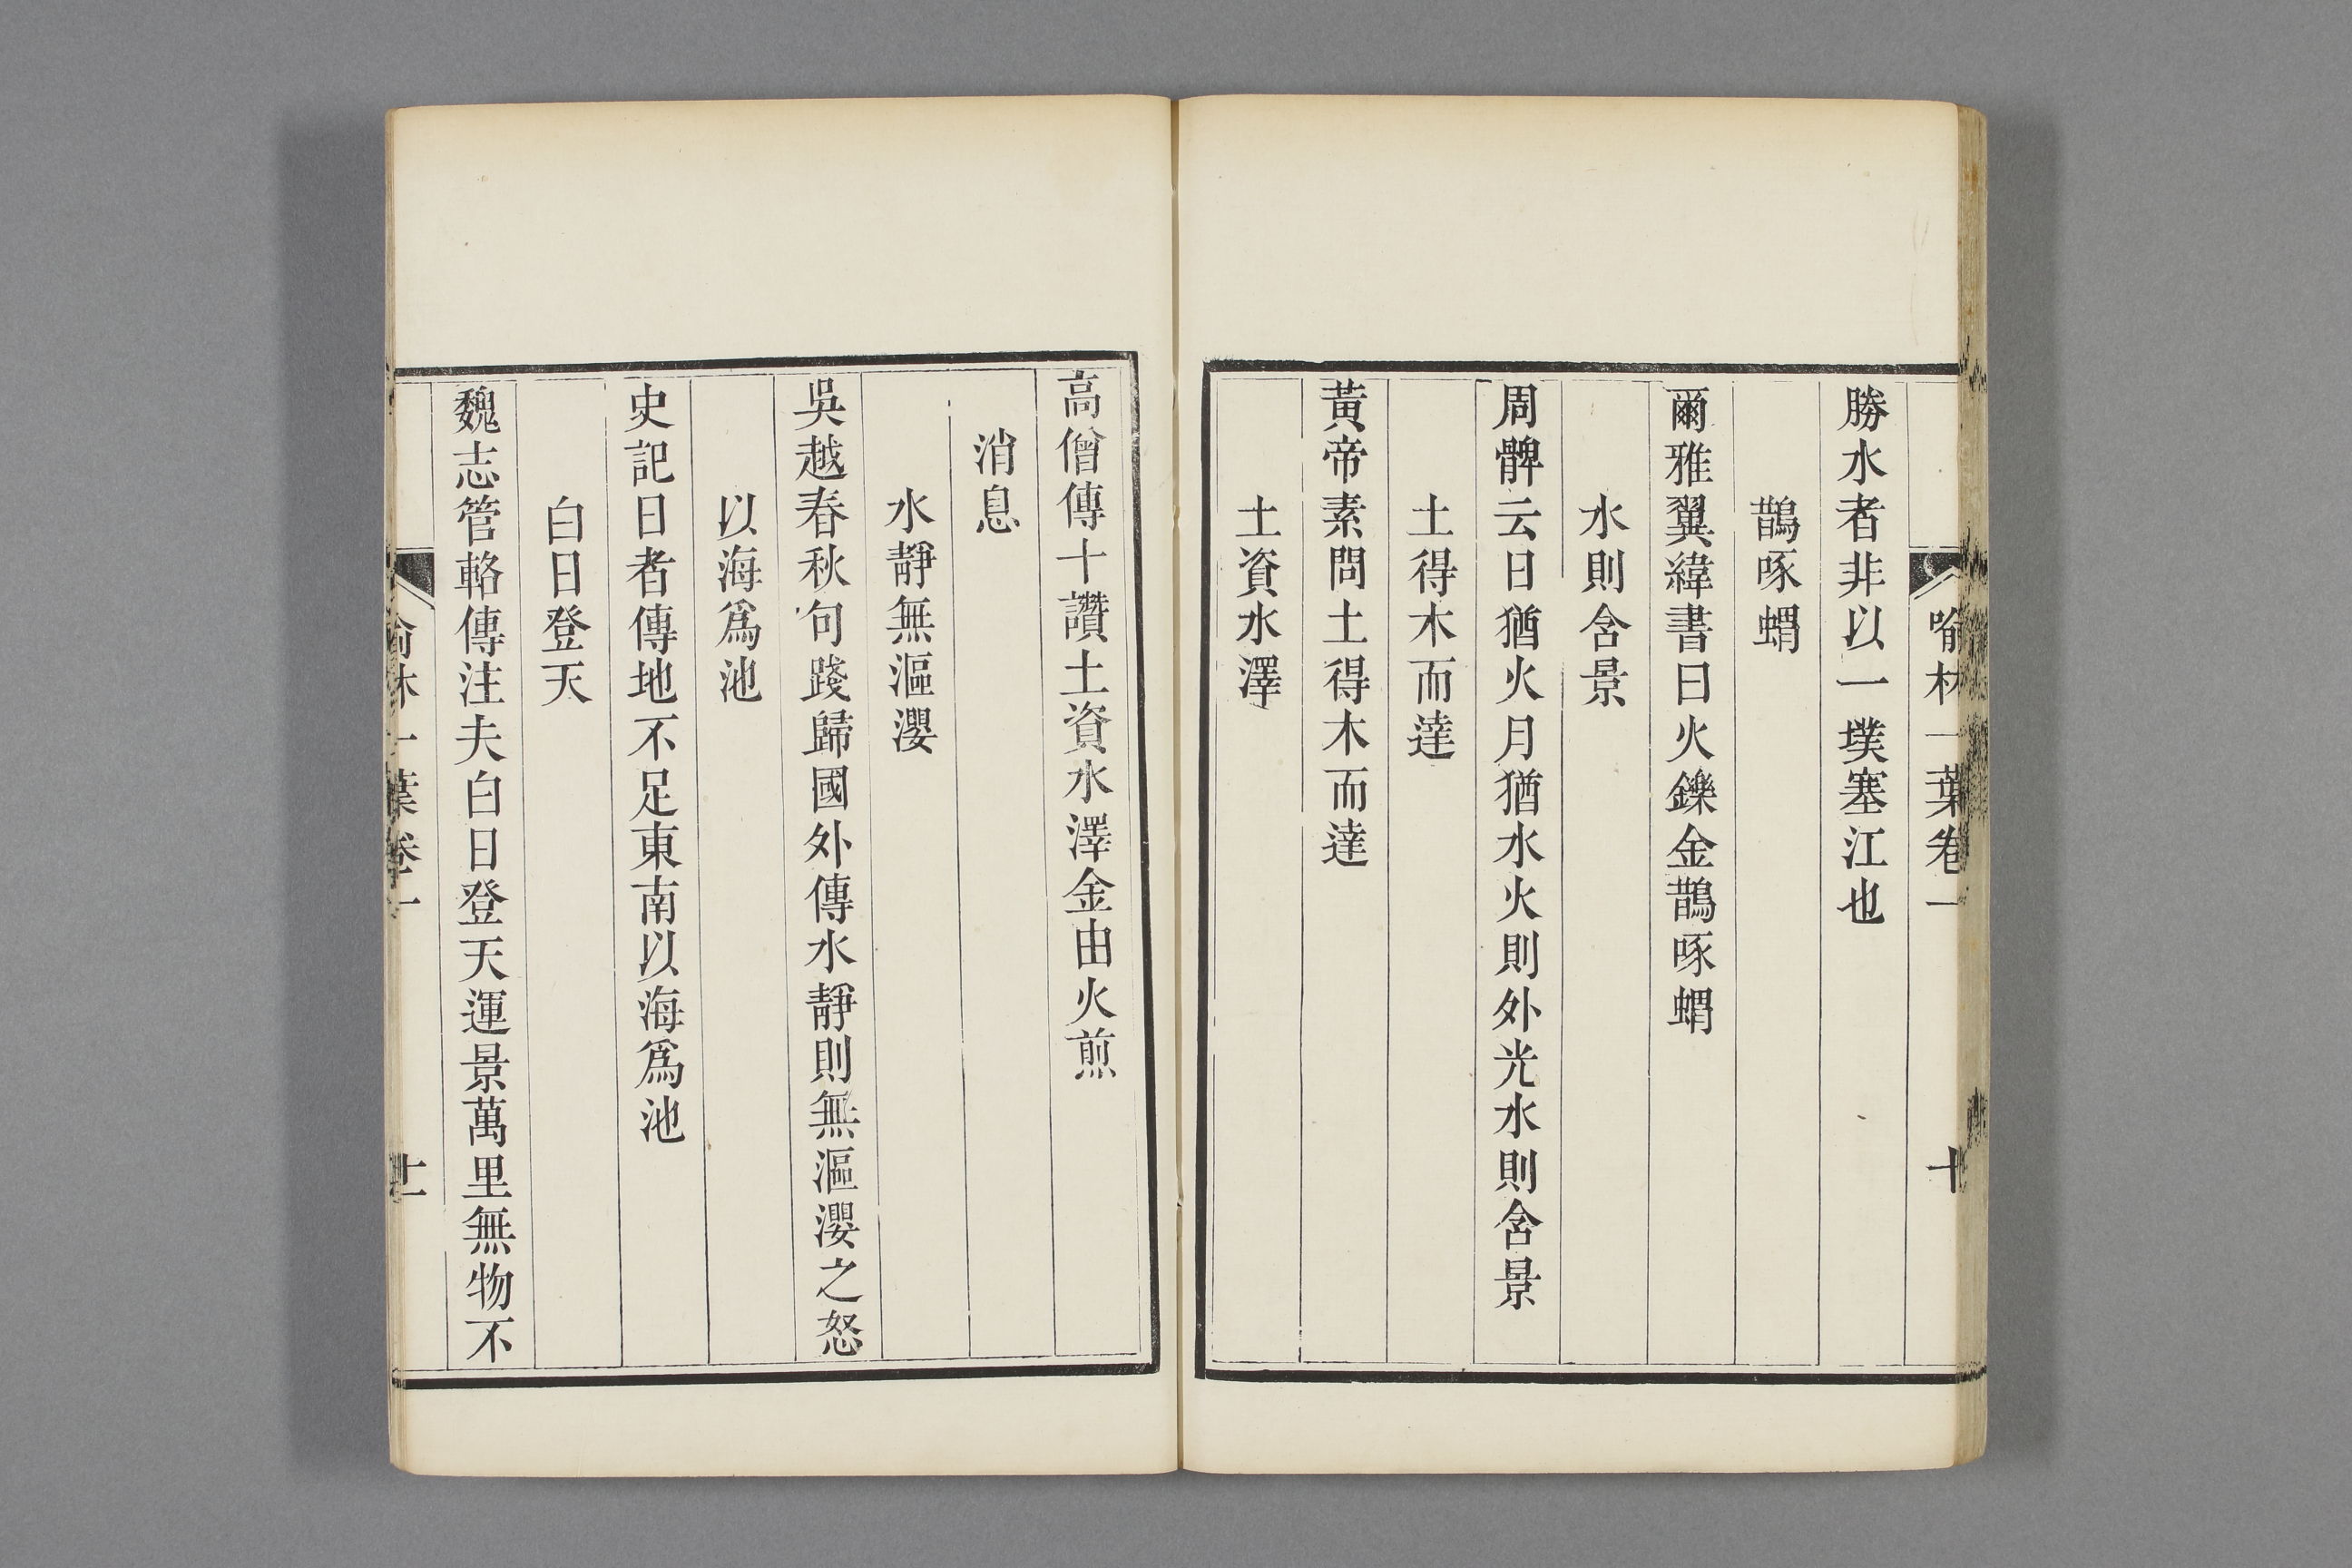 喻林一葉卷一
十
勝水者非以一墣塞江也
鵲啄蝟
爾雅翼緯書曰火鑠金鵲啄蝟
水則含景
周髀云日猶火月猶水火則外光水則含景
土得木而達
黃帝素問土得木而達
土資水澤
高僧傳十讚土資水澤金由火煎
消息
水靜無漚瀴
吳越春秋句踐歸國外傳水靜則無漚瀴之怒
以海爲池
史記日者傳地不足東南以海爲池
白日登天
魏志管輅傳注夫白日登天運景萬里無物不
喻林一葉卷一
十一